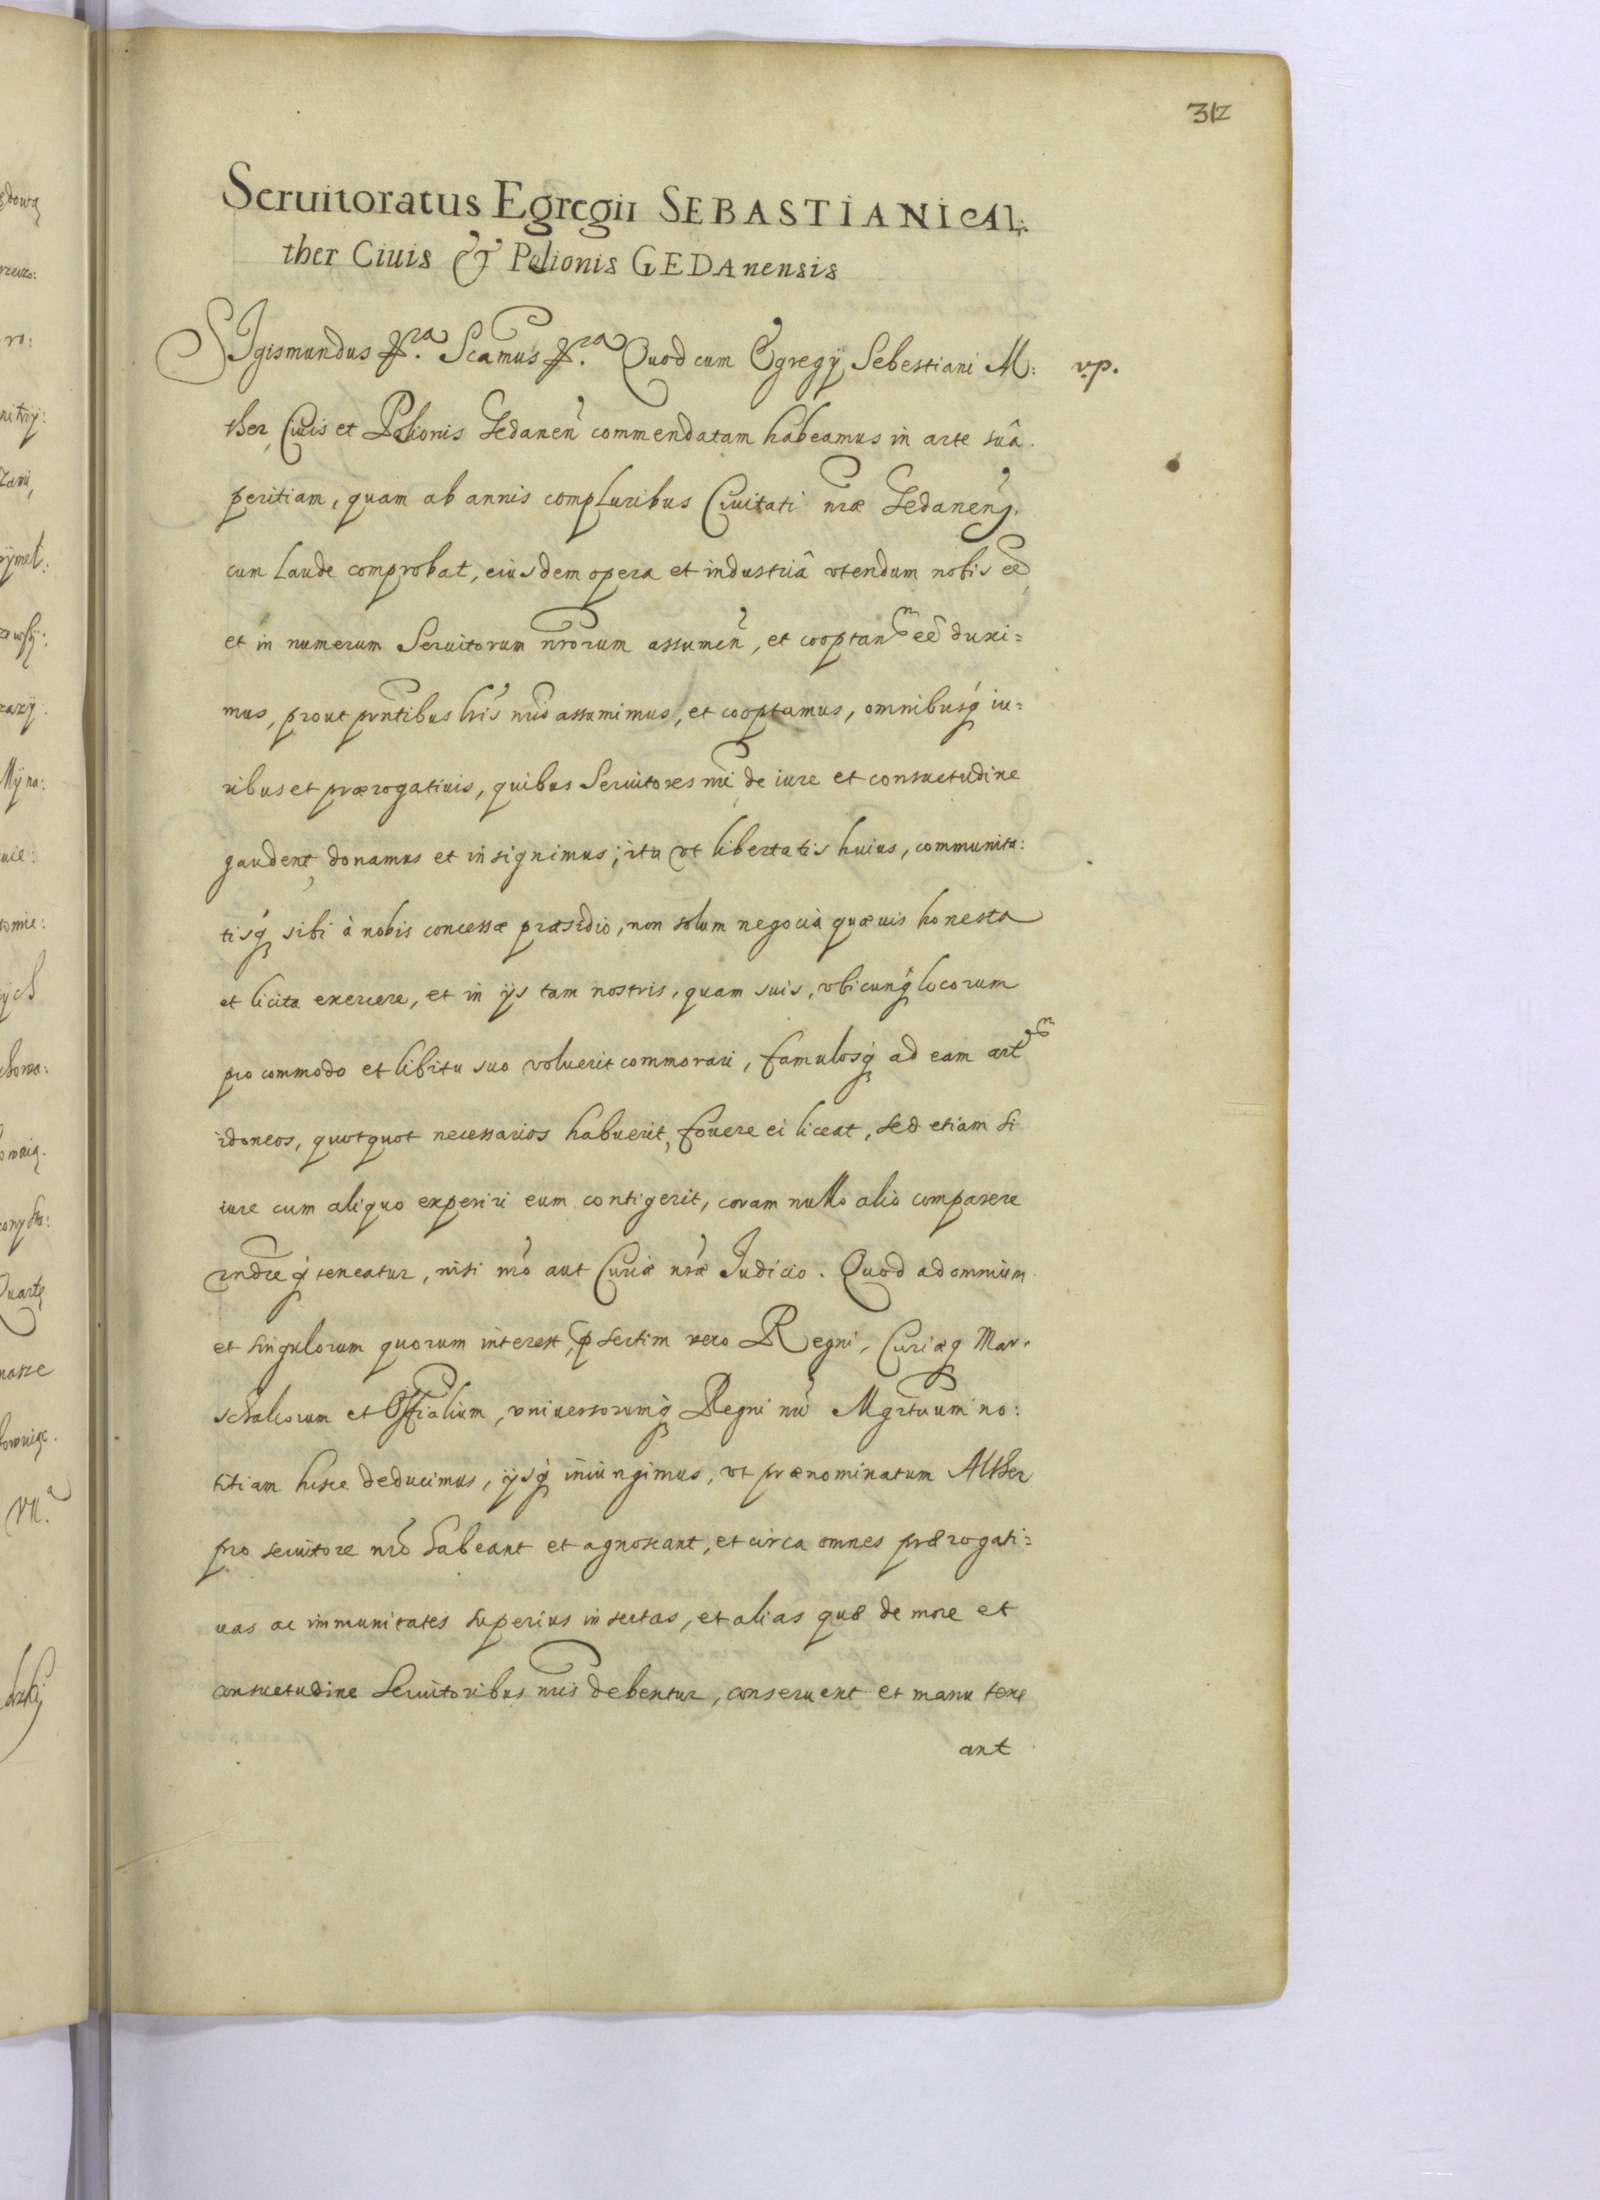 312
Seruitoratus Egregii SEBASTIANI Al:
ther Ciuis & Pelionis GEDAnensis
SIgismundus &ra. Scamus &ra. Quod cum Egregÿ Sebestiani Al: v.p.
ther Ciuis et Pelionis Gedanen̄ commendatam habeamus in arte suâ
peritiam, quam ab annis compluribus Ciuitati nr̄æ Gedanens.
cum laude comprobat, eiusdem opera et industriâ vtendum nobis eē
et in numerum Seruitorum nr̄orum assumen̄, et cooptanm eē duxi=
mus, prout pr̄ntibus lr̄is nr̄is assumimus, et cooptamus, omnibusq́ iu=
ribus et prærogatiuis, quibus Seruitores nr̄i de iure et consuetudine
gaudent donamus et insignimus; ita vt libertatis huius, communita:
tisq́ sibi à nobis concessæ præsidio, non solum negocia quæuis honesta
et licita exercere, et in ÿs tam nostris, quam suis, vbicunq́ locorum
pro commodo et libitu suo voluerit commorari, famulosq́ ad eam artem
idoneos, quotquot necessarios habuerit, fouere ei liceat, sed etiam si
iure cum aliquo experiri eum contigerit, coram nullo alio comparere
rn̄dreq́ teneatur, nisi nr̄o aut Curiæ nr̄æ Judicio. Quod ad omnium
et singulorum quorum interest, p̄sertim vero Regni, Curiæq́ Mar=
schalcorum et Offialium, vniuersorumq́ Regni nr̄i Mgrtuum no:
titiam hisce deducimus, ÿsq́ iniungimus, vt prænominatum Alther
pro seruitore nr̄o habeant et agnoscant, et circa omnes prærogati=
uas ac immunitates superius insertas, et alias quæ de more et
consuetudine Seruitoribus nr̄is debentur, conseruent et manu tene
ant